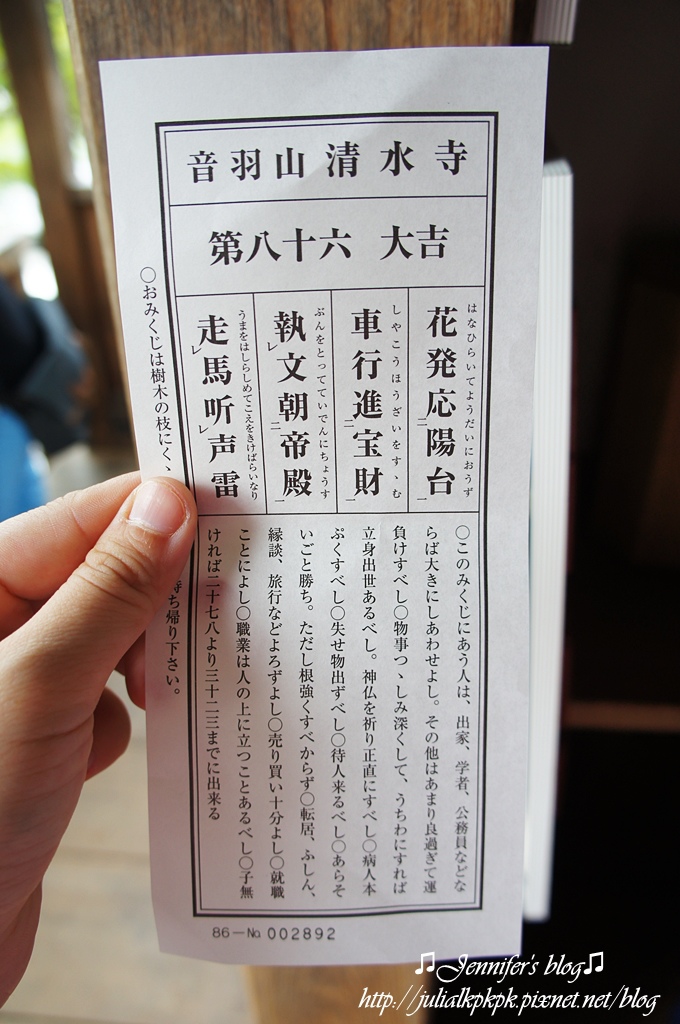 音羽山 清水寺
第八十六 大吉
はなひらいてようだいにおうず
花発応二陽台一
しやこうほうざいをすゝむ
車行進二宝財一
ぶんをとってていでんにちょうす
執レ文朝二帝殿一
うまをはしらしめてこえをきけばらいなり
走レ馬听レ声雷
〇このみくじにあう人は、出家、学者、公務員などな
らば大きにしあわせよし。その他はあまり良過ぎて運
負けすべし〇物事つゝしみ深くして、うちわにすれば
立身出世あるべし。神仏を祈り正直にすべし〇病人本
ぷくすべし〇失せ物出ずべし〇待人来るべし〇あらそ
いごと勝ち。ただし根強くすべからず〇転居、ふしん、
縁談、旅行などよろずよし〇売り買い十分よし〇就職
ことによし〇職業は人の上に立つことあるべし〇子無
ければ二十七八より三十二三までに出来る
〇おみくじは樹木の枝にくゝ
持ち帰り下さい。
86-No 002892
♫Jennifer's blog♫
http://julialkpkpk.pixnet.net/blog